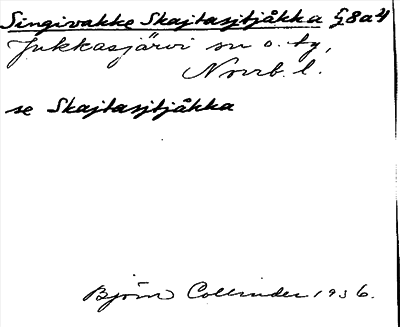 Singivakke Skajtasjtjåkka § 8a4
Jukkasjärvi sn o. tg,
Norrb. l.
se Skajtasjtjåkka
Björn Collinder 1936.